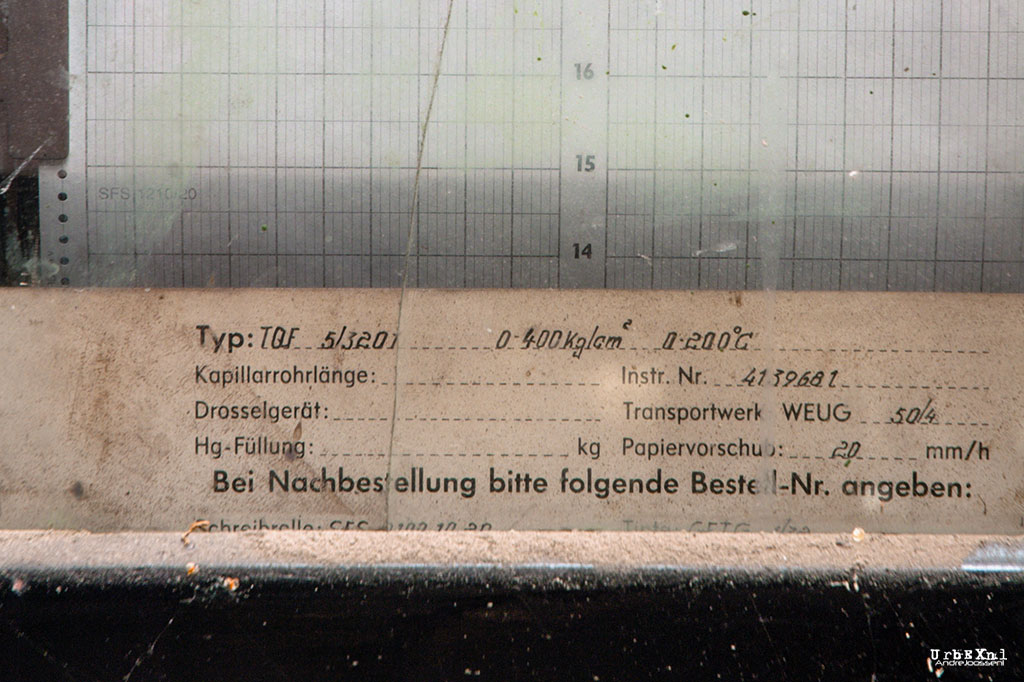 16
15
SFS 1210-20
14
Typ: TQF 5/3201 0-400Kg/cm² 0-200°C
Kapillarrohrlänge: Instr. Nr. 4139681
Drosselgerät: Transportwerk WEUG 50/4
Hg-Füllung: kg Papiervorschub: 20 mm/h
Bei Nachbestellung bitte folgende Bestell-Nr. angeben:
Schreibrolle: SFS
UrbEXnl
AndreJoosseni